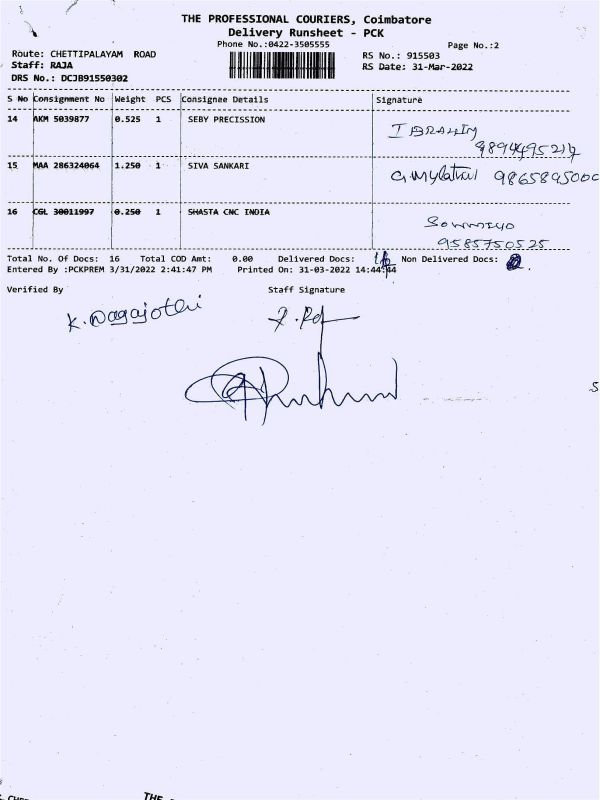 THE PROFESSIONAL COURIERS, Coimbatore
Delivery Runsheet - PCK
Phone No.:0422-3505555 Page No.:2
Route: CHETTIPALAYAM ROAD RS No.: 915503
Staff: RAJA RS Date: 31-Mar-2022
DRS No.: DCJB91550302
S No Consignment No Weight PCS Consignee Details Signature
14 AKM 5039877 0.525 1 SEBY PRECISSION
IBRAHIM
15 MAA 286324064 1.250 1 SIVA SANKARI
9865895000
16 CGL 30011997 0.250 1 SHASTA CNC INDIA
9585750525
Total No. Of Docs: 16 Total COD Amt: 0.00 Delivered Docs: Non Delivered Docs:
Entered By :PCKPREM 3/31/2022 2:41:47 PM Printed On: 31-03-2022 14:44:44
Verified By Staff Signature
K. Nagajothi
THE